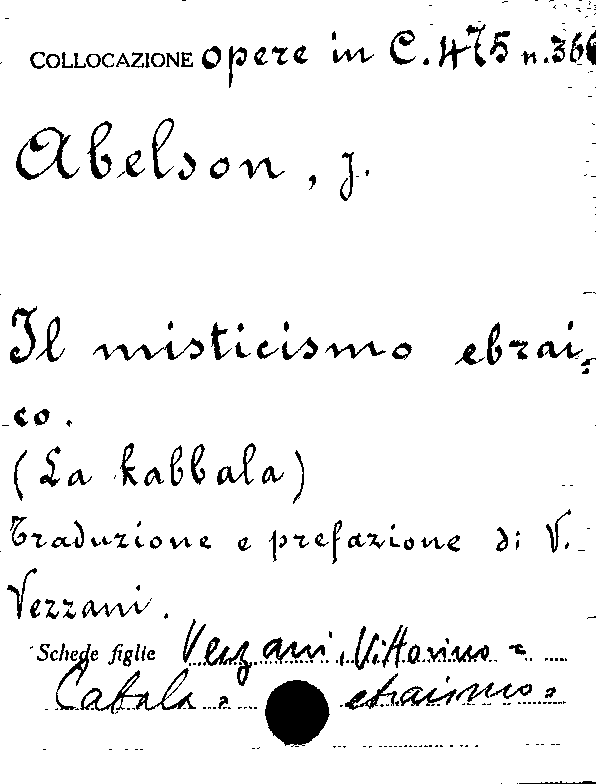 COLLOCAZIONE opere in C. 475 n. 366
Abelson, J.
Il misticismo ebrai-
co.
(La kabbala)
Traduzione e prefazione di V.
Vezzani.
Schede figlie Vezzani, Vittorino =
Cabala = ebraismo =